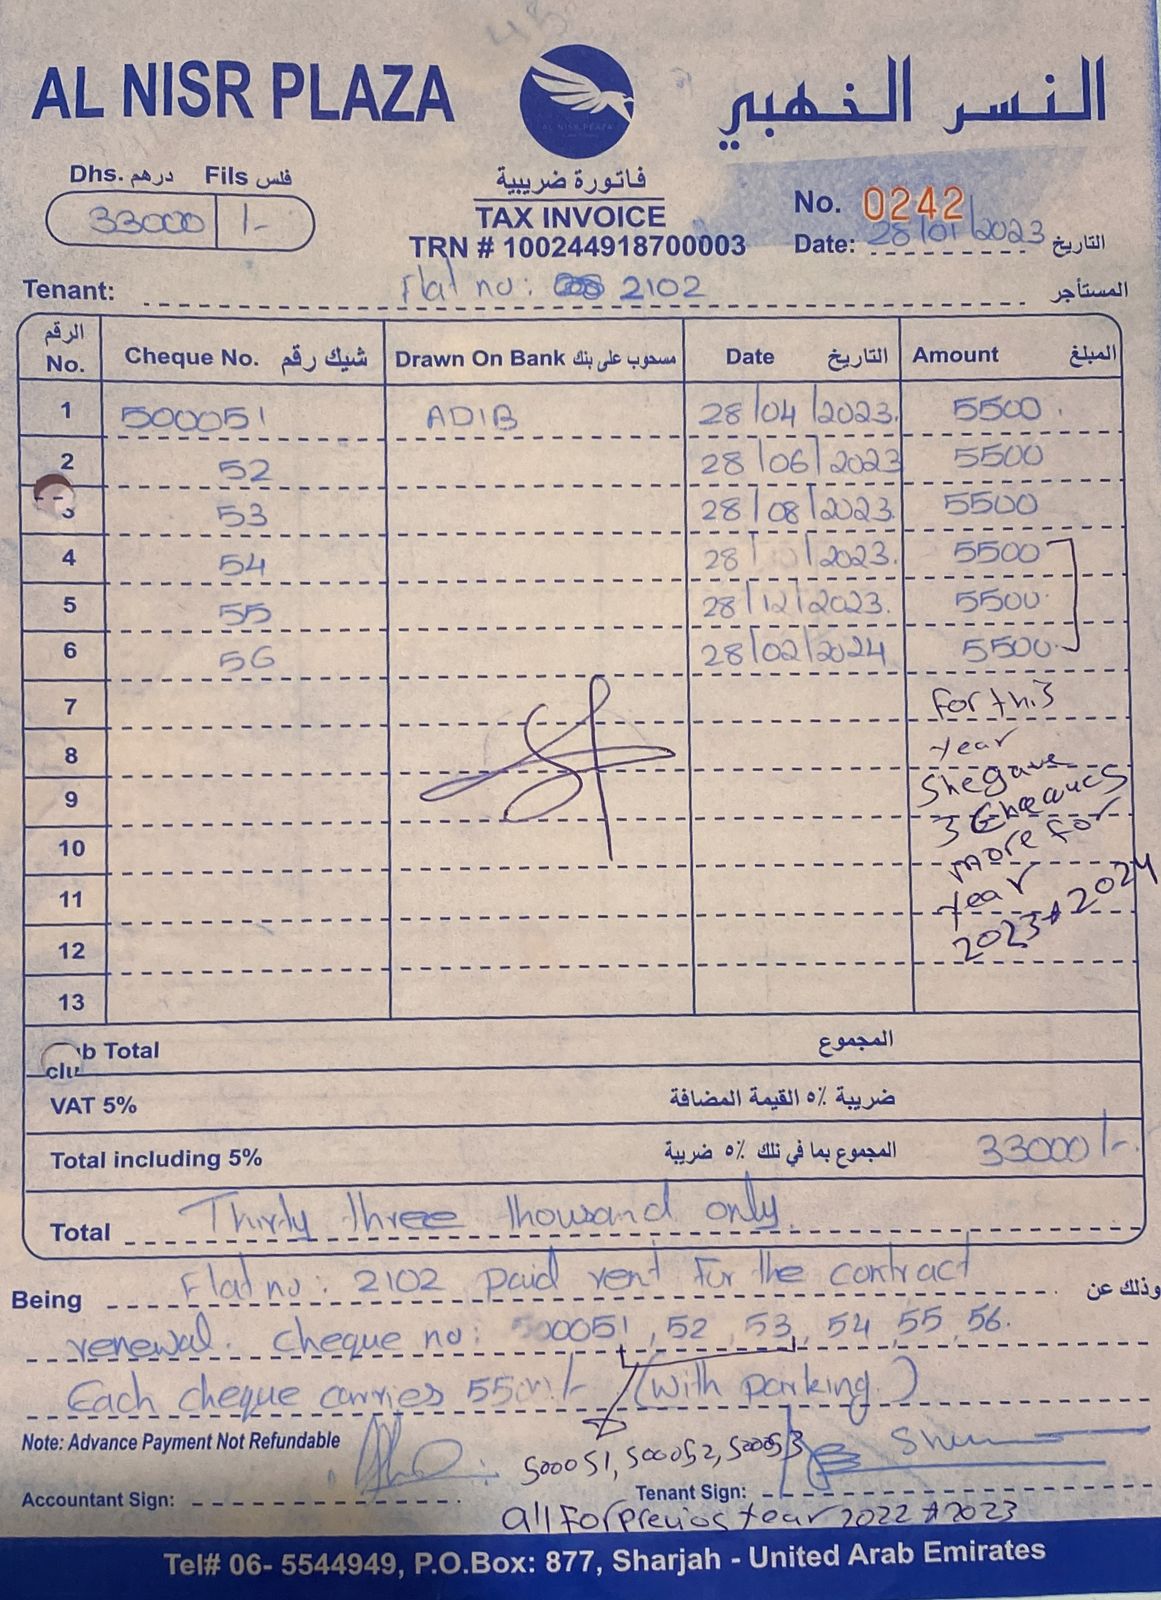 AL NISR PLAZA
النسر الذهبي
AL NISR PLAZA
Dhs. درهم Fils فلس
33000 /-
فاتورة ضريبية
TAX INVOICE
TRN # 100244918700003
No. 0242
Date: 28/01/2023 التاريخ
Tenant: Flat no: 2102 المستأجر
الرقم No. Cheque No. شيك رقم Drawn On Bank مسحوب على بنك Date التاريخ Amount المبلغ
1 500051 ADIB 28/04/2023. 5500
2 52 28/06/2023 5500
3 53 28/08/2023 5500
4 54 28/ /2023. 5500
5 55 28/12/2023. 5500
6 56 28/02/2024 5500
7 for this
8 year
9 She gave
3 Cheaques
10 more for
11 year
12 2023 2024
13
b Total المجموع
clu
VAT 5% ضريبة ٥٪ القيمة المضافة
Total including 5% المجموع بما في تلك ٥٪ ضريبة 33000/-
Total Thirty three thousand only
Being Flat no: 2102 paid rent for the contract وذلك عن
renewal. cheque no: 500051, 52, 53, 54, 55, 56.
Each cheque carries 5500/- (with parking)
Note: Advance Payment Not Refundable
500051, 500052, 500053
Accountant Sign: Tenant Sign:
all for previos year 2022 2023
Tel# 06- 5544949, P.O.Box: 877, Sharjah - United Arab Emirates